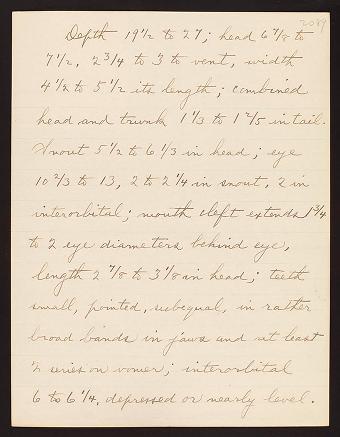 2089
Depth 19 1/2 to 27; head 6 7/8 to
7 1/2, 2 3/4 to 3 to vent, width
4 1/2 to 5 1/2 its length; combined
head and trunk 1 1/3 to 1 2/5 in tail.
Snout 5 1/2 to 6 1/3 in head; eye
10 2/3 to 13, 2 to 2 1/4 in snout, 2 in
interorbital; mouth cleft extends 1 3/4
to 2 eye diameters behind eye,
length 2 7/8 to 3 1/8 in head; teeth
small, pointed, subequal, in rather
broad bands in jaws and at least
2 series on vomer; interorbital
6 to 6 1/4, depressed or nearly level.